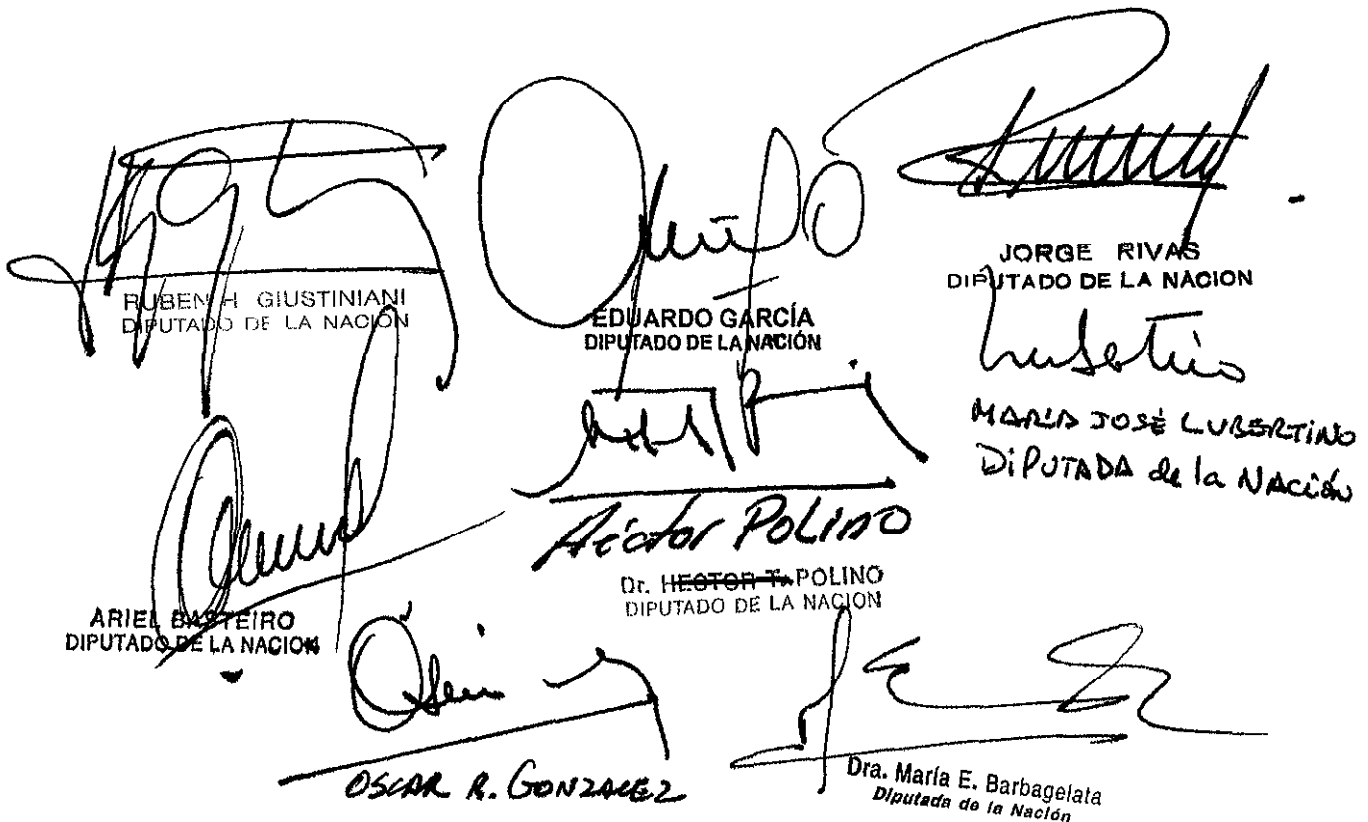 RUBEN H GIUSTINIANI
DIPUTADO DE LA NACION
EDUARDO GARCÍA
DIPUTADO DE LA NACIÓN
JORGE RIVAS
DIPUTADO DE LA NACION
Lubertino
MARÍA JOSÉ LUBERTINO
DiPUTADA de la NACión
ARIEL BASTEIRO
DIPUTADO DE LA NACION
Héctor POLINO
Dr. HECTOR T. POLINO
DIPUTADO DE LA NACION
OSCAR R. GONZALEZ
Dra. María E. Barbagelata
Diputada de la Nación